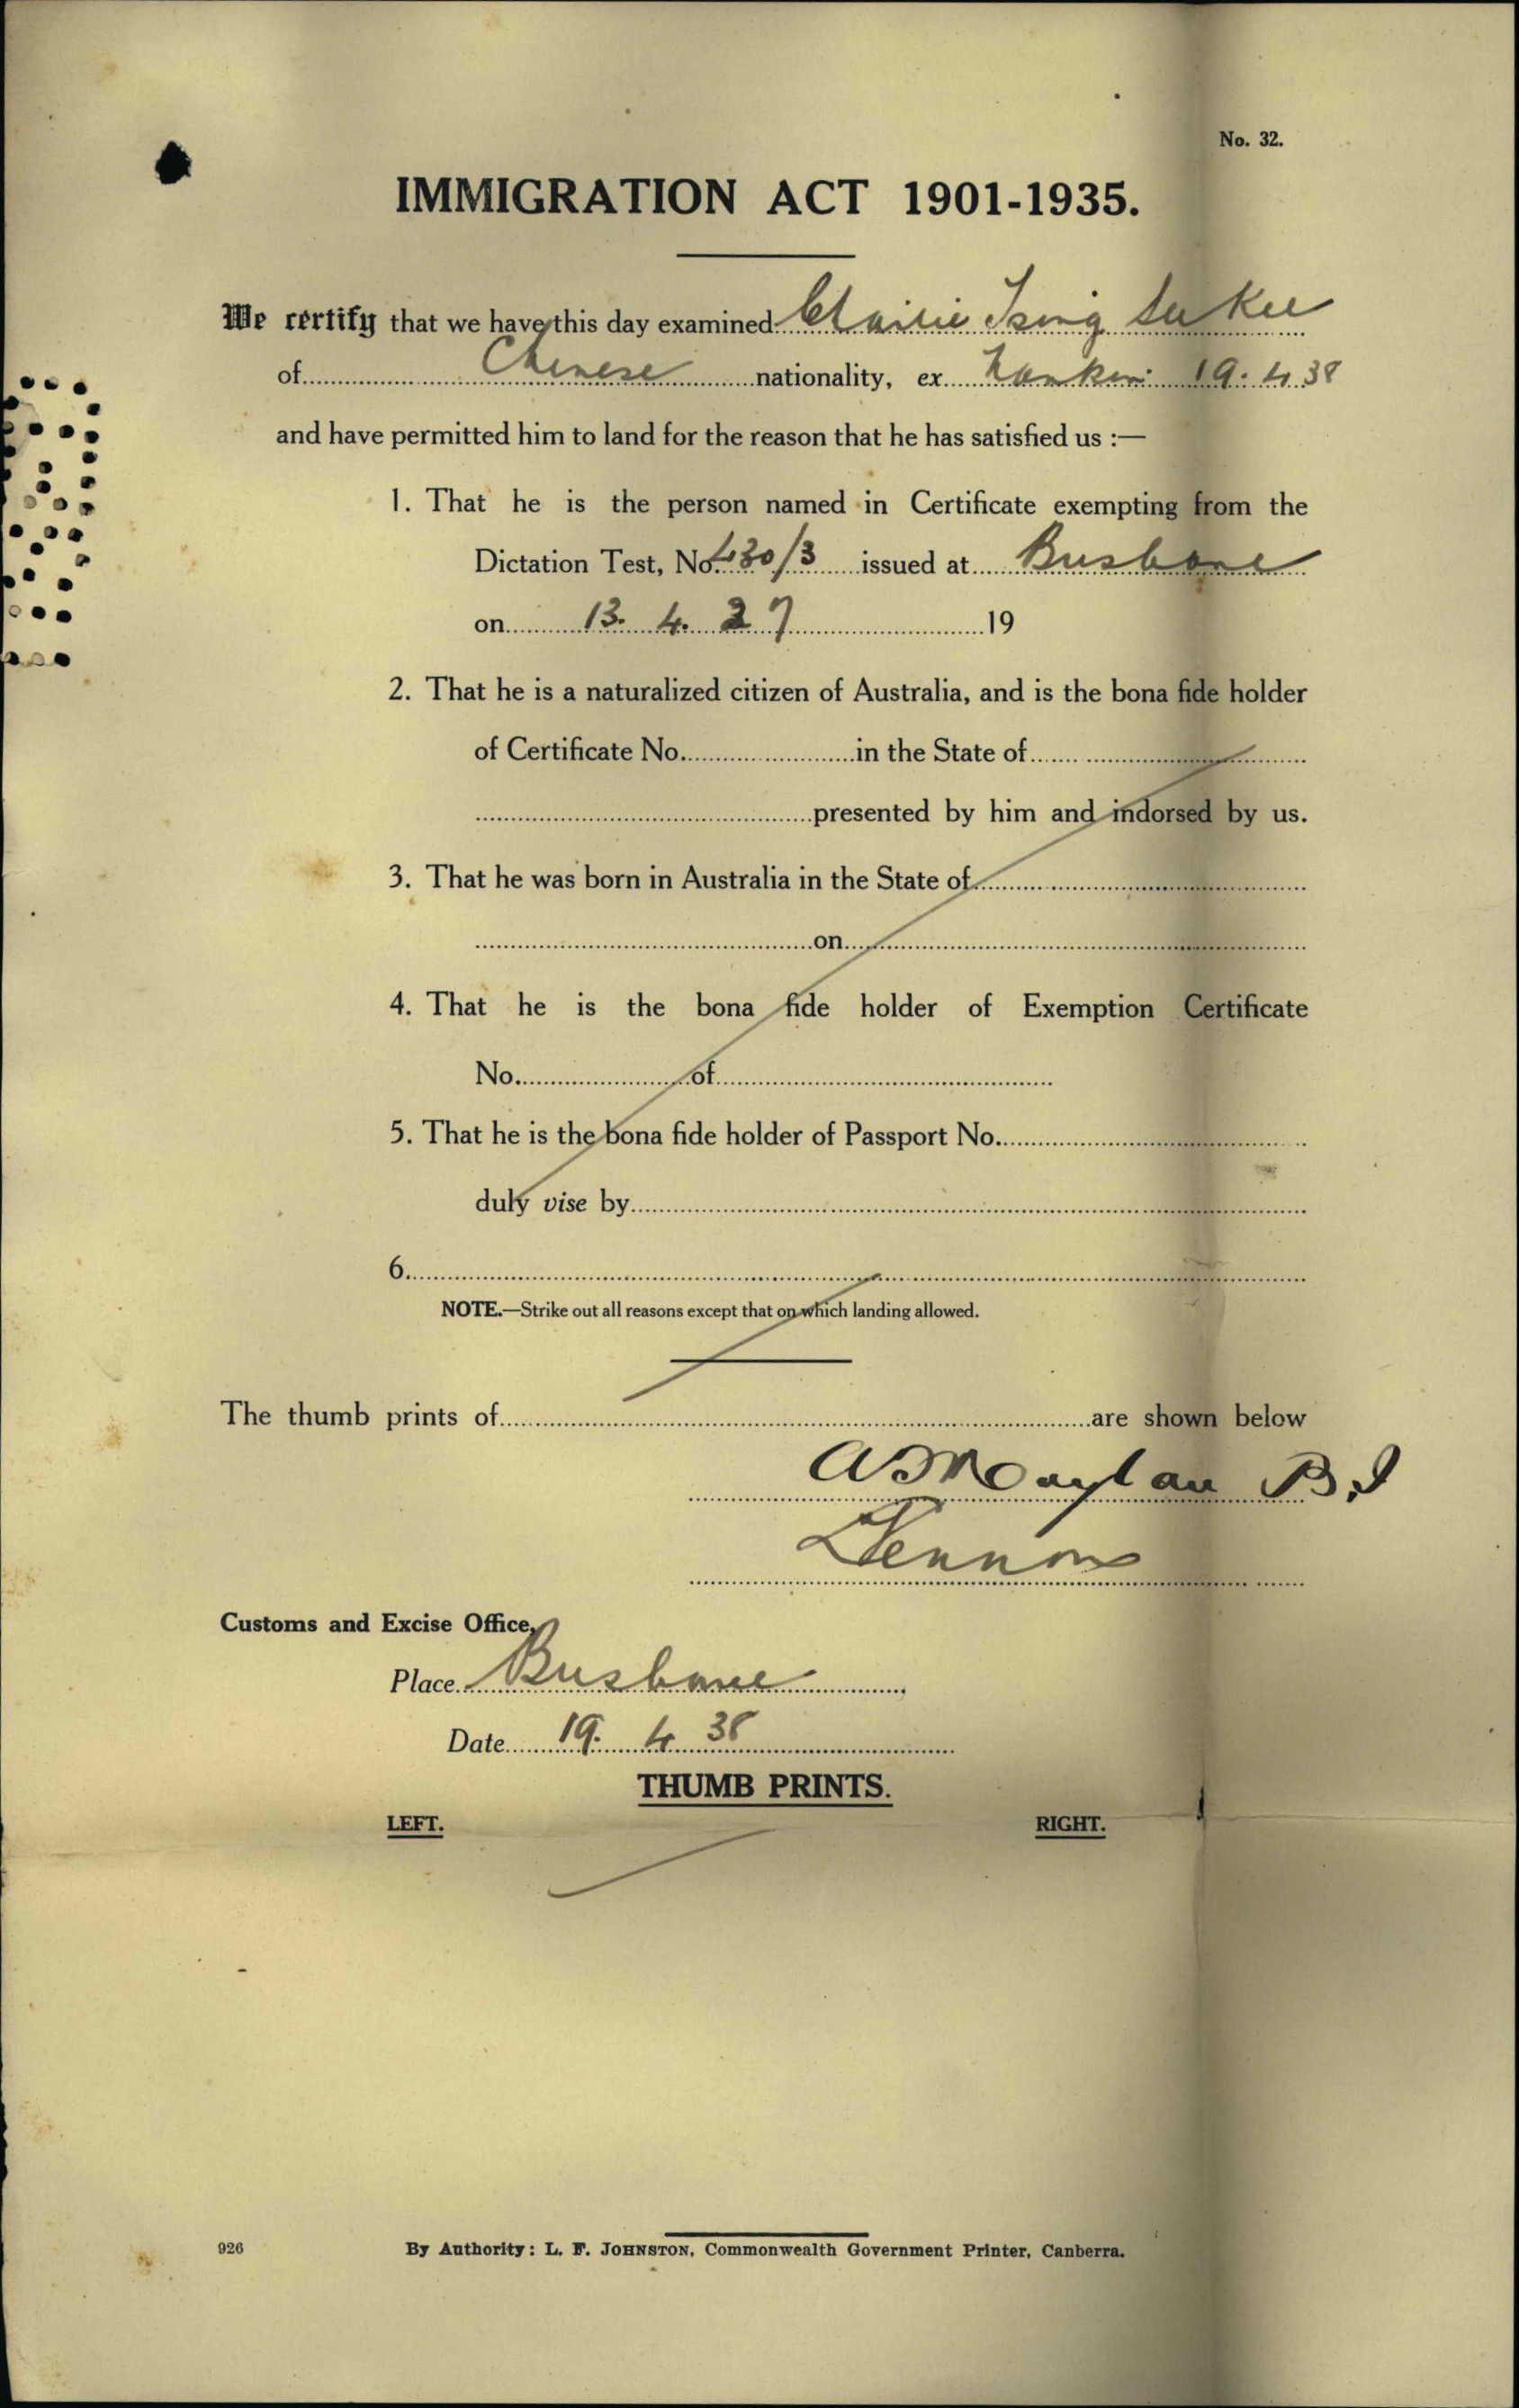 No. 32.
IMMIGRATION ACT 1901-1935.
We certify that we have this day examined Tsing See Kee
of Chinese nationality, ex Nankin 19. 4. 38
and have permitted him to land for the reason that he has satisfied us :—
1. That he is the person named in Certificate exempting from the
Dictation Test, No. 430/3 issued at Brisbane
on 13. 4. 27 19
2. That he is a naturalized citizen of Australia, and is the bona fide holder
of Certificate No. in the State of
presented by him and indorsed by us.
3. That he was born in Australia in the State of
on
4. That he is the bona fide holder of Exemption Certificate
No. of
5. That he is the bona fide holder of Passport No.
duly vise by
6.
NOTE.—Strike out all reasons except that on which landing allowed.
The thumb prints of are shown below
B.I
Lennon
Customs and Excise Office,
Place Brisbane
Date 19. 4 38
THUMB PRINTS.
LEFT. RIGHT.
926 By Authority: L. F. JOHNSTON, Commonwealth Government Printer, Canberra.